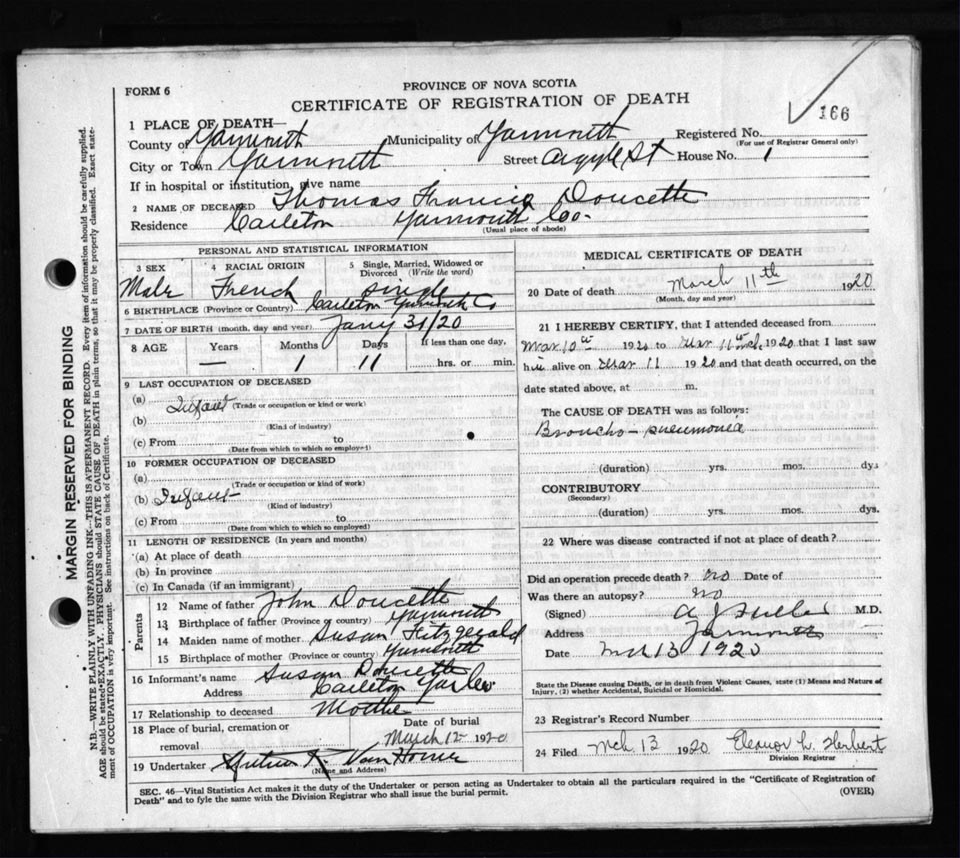 PROVINCE OF NOVA SCOTIA
FORM 6
CERTIFICATE OF REGISTRATION OF DEATH
166
1 PLACE OF DEATH—
County of Yarmouth Municipality of Yarmouth Registered No.
(For use of Registrar General only)
City or Town Yarmouth Street Argyle St House No. 1
If in hospital or institution, give name
2 NAME OF DECEASED Thomas Francis Doucette
Residence Carleton Yarmouth Co.
(Usual place of abode)
PERSONAL AND STATISTICAL INFORMATION
3 SEX Male
4 RACIAL ORIGIN French
5 Single, Married, Widowed or Divorced (Write the word) Single
6 BIRTHPLACE (Province or Country) Carleton Yarmouth Co
7 DATE OF BIRTH (month, day and year) Jany 31/20
8 AGE Years — Months 1 Days 11 If less than one day, hrs. or min.
9 LAST OCCUPATION OF DECEASED
(a) Infant
(Trade or occupation or kind of work)
(b)
(Kind of industry)
(c) From to
(Date from which to which so employed)
10 FORMER OCCUPATION OF DECEASED
(a)
(Trade or occupation or kind of work)
(b) Infant
(Kind of industry)
(c) From to
(Date from which to which so employed)
11 LENGTH OF RESIDENCE (In years and months)
(a) At place of death
(b) In province
(c) In Canada (if an immigrant)
Parents
12 Name of father John Doucette
13 Birthplace of father (Province or country) Yarmouth
14 Maiden name of mother Susan Fitzgerald
15 Birthplace of mother (Province or country) Yarmouth
16 Informant's name Susan Doucette
Address Carleton Yar Co
17 Relationship to deceased Mother
18 Place of burial, cremation or removal
Date of burial
March 12 1920
19 Undertaker Van Horne
(Name and Address)
MEDICAL CERTIFICATE OF DEATH
20 Date of death March 11th 1920
(Month, day and year)
21 I HEREBY CERTIFY, that I attended deceased from
Mar 10th 1920 to Mar 11th 1920 that I last saw
him alive on Mar 11 1920 and that death occurred, on the
date stated above, at m.
The CAUSE OF DEATH was as follows:
Broncho-pneumonia
(duration) yrs. mos. dys
CONTRIBUTORY
(Secondary)
(duration) yrs. mos. dys.
22 Where was disease contracted if not at place of death?
Did an operation precede death? no Date of
Was there an autopsy? no
(Signed) A J Fuller M.D.
Address Yarmouth
Date Mch 13 1920
State the Disease causing Death, or in death from Violent Causes, state (1) Means and Nature of
Injury, (2) whether Accidental, Suicidal or Homicidal.
23 Registrar's Record Number
24 Filed Mch 13 1920 Eleanor L. Herbert
Division Registrar
SEC. 46—Vital Statistics Act makes it the duty of the Undertaker or person acting as Undertaker to obtain all the particulars required in the "Certificate of Registration of
Death" and to fyle the same with the Division Registrar who shall issue the burial permit. (OVER)
MARGIN RESERVED FOR BINDING
N.B.—WRITE PLAINLY WITH UNFADING INK—THIS IS A PERMANENT RECORD. Every item of information should be carefully supplied.
AGE should be stated EXACTLY. PHYSICIANS should STATE CAUSE OF DEATH in plain terms, so that it may be properly classified. Exact statement of OCCUPATION is very important. See instructions on back of Certificate.